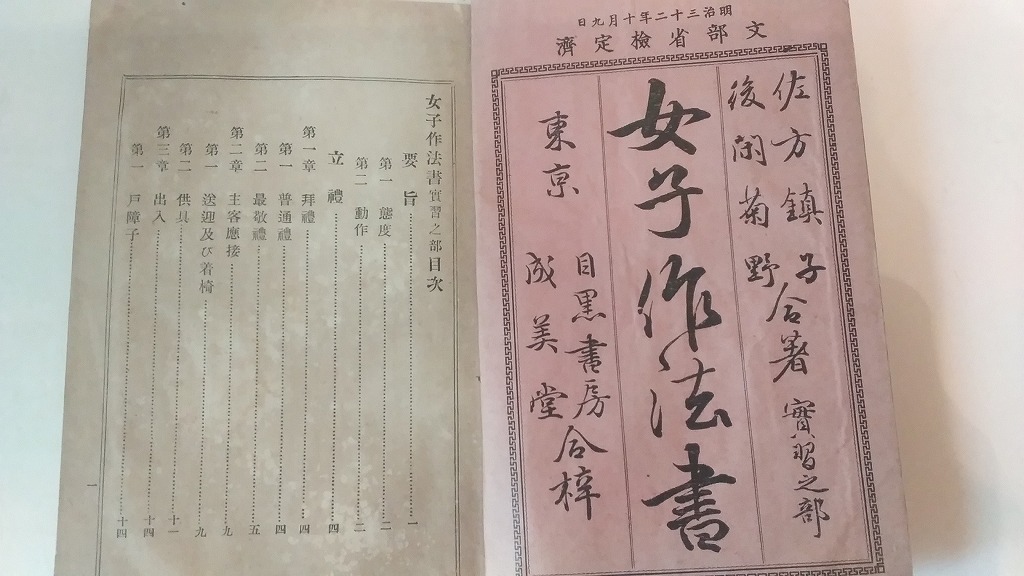 明治三十二年十月九日
文部省檢定濟
佐方鎮子
後閑菊野
合著
實習之部
女子作法書
東京
目黒書房
成美堂
合梓
女子作法書實習之部目次
要旨……一
第一 態度……二
第二 動作……二
立禮……四
第一章 拜禮……四
第一 普通禮……四
第二 最敬禮……五
第二章 主客應接……九
第一 送迎及び着椅……九
第二 供具……十一
第三章 出入……十四
第一 戸障子……十四
一